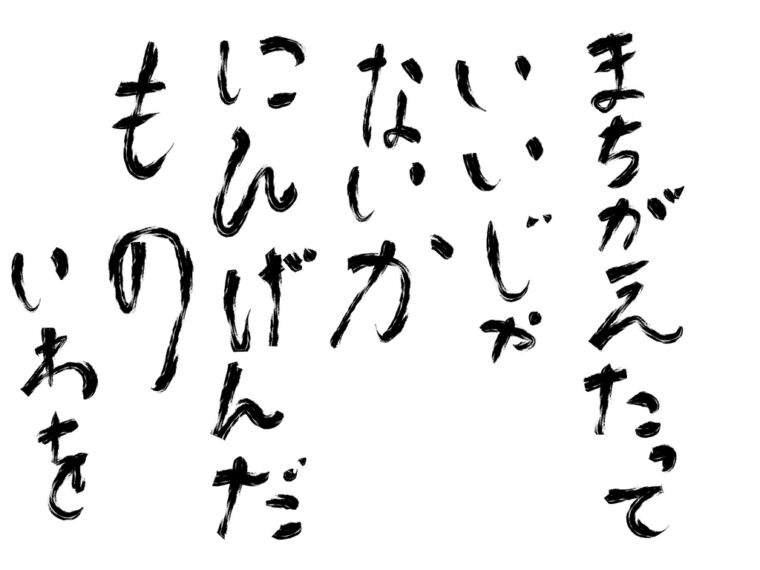 まちがえたって
いいじゃ
ないか
にんげんだ
もの
いわを